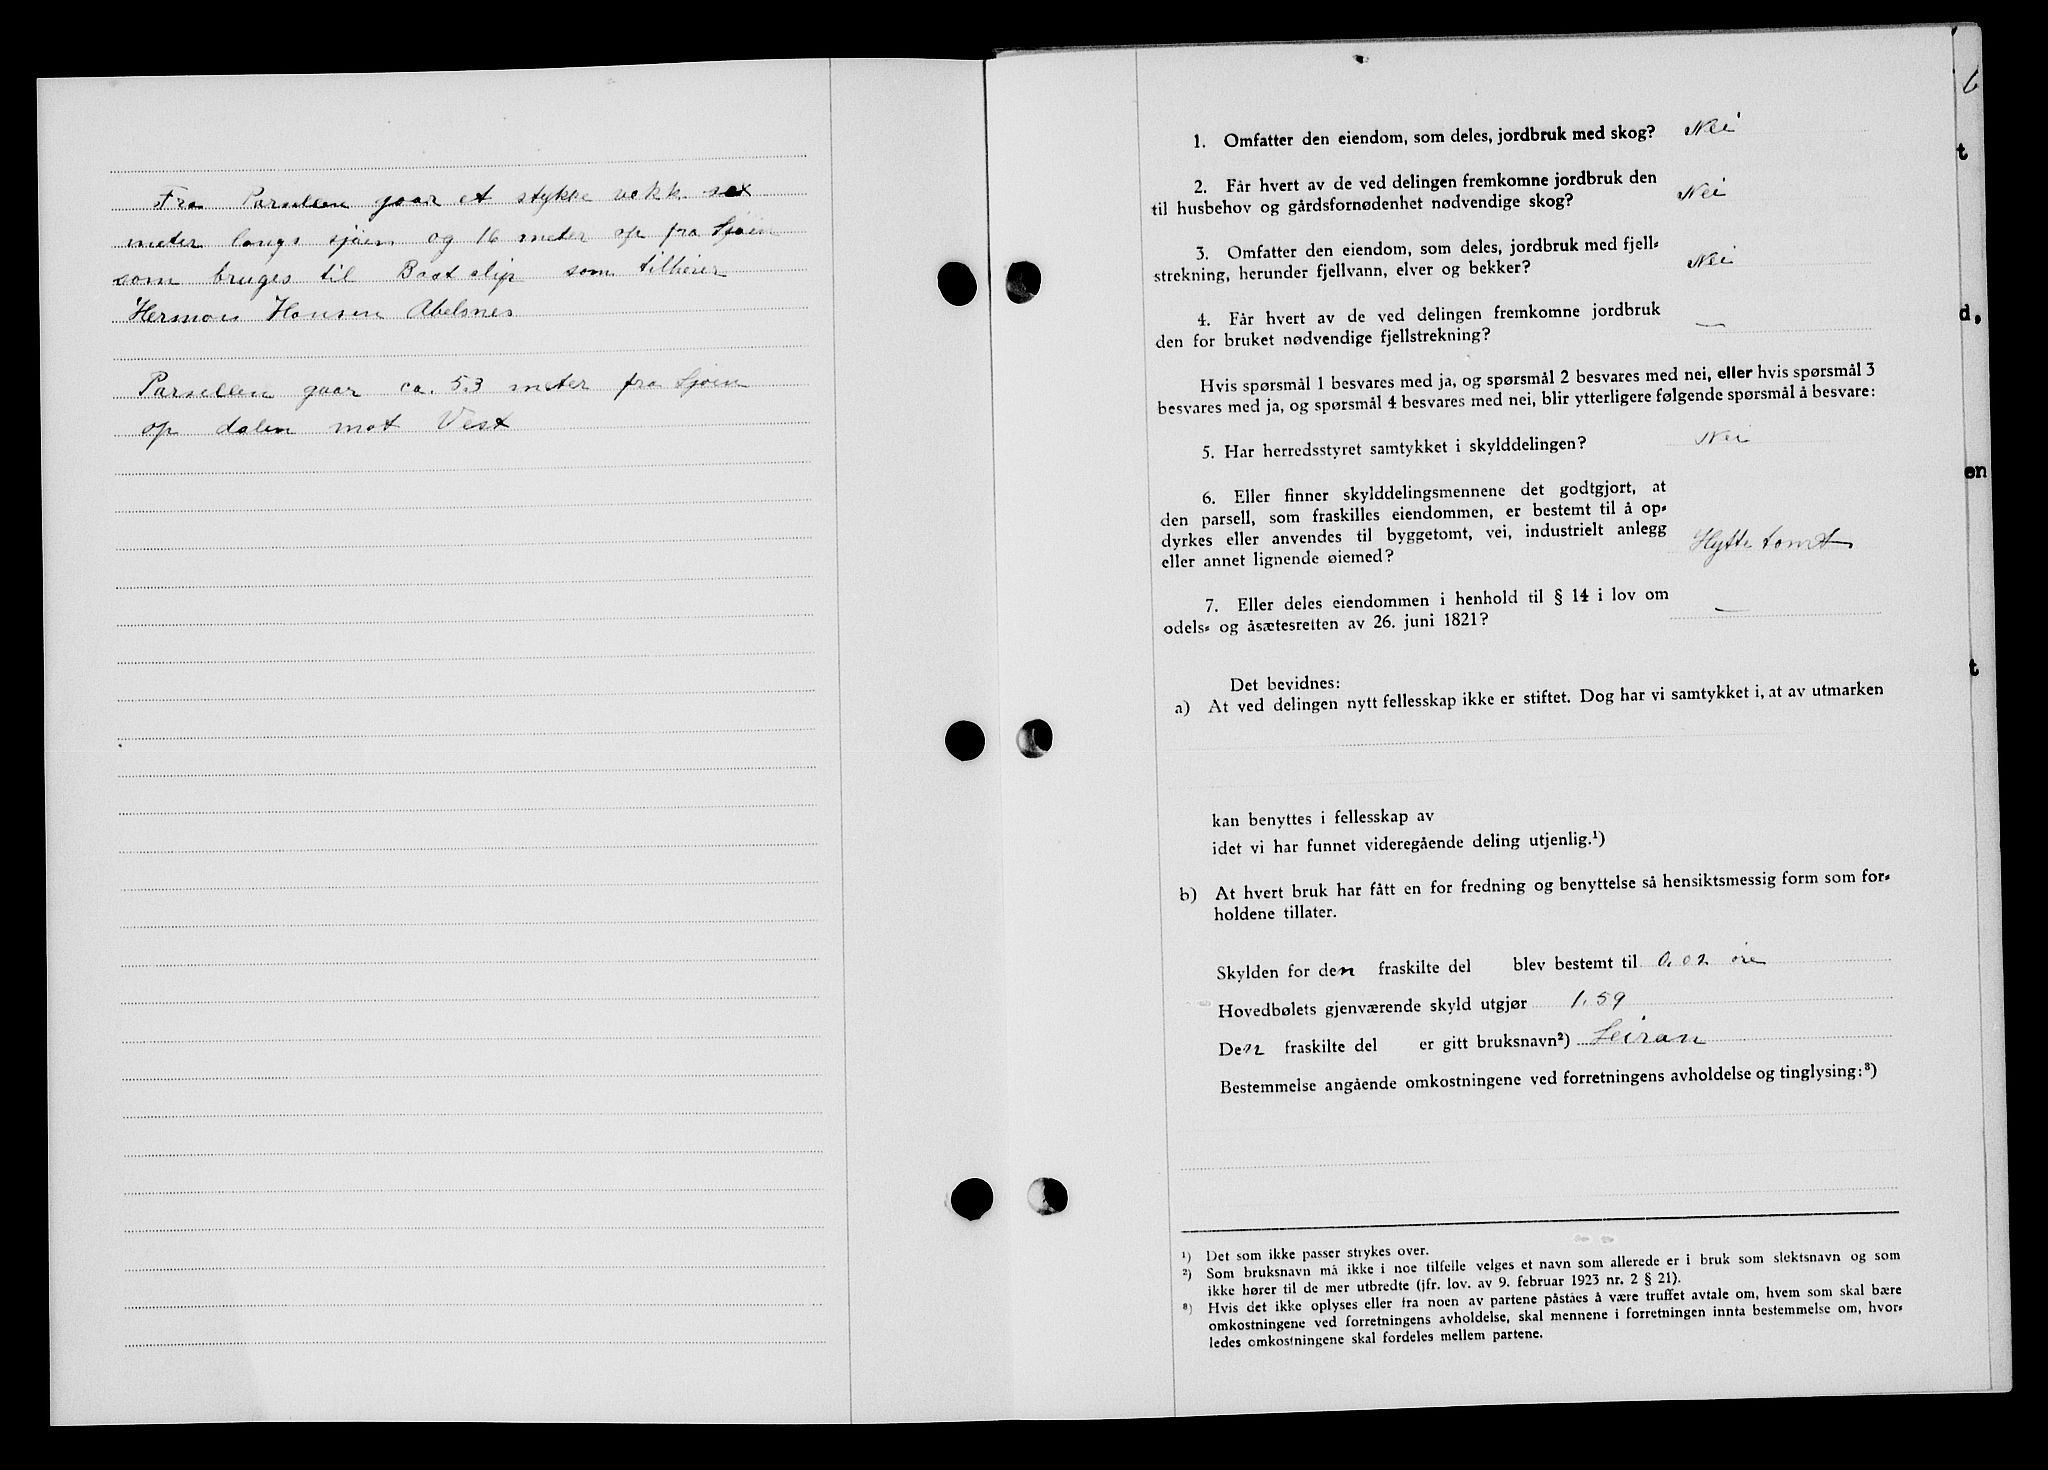 Fra Parsellen gaar et stykke vekk sex
meter langs sjøen og 16 meter op fra Sjøen
som bruges til Baatslip som tilhører
Herman Hansen Abelsnes
Parsellen gaar ca. 53 meter fra Sjøen
op dalen mot Vest
6
1. Omfatter den eiendom, som deles, jordbruk med skog? Nei
t
2. Får hvert av de ved delingen fremkomne jordbruk den
til husbehov og gårdsfornødenhet nødvendige skog? Nei
3. Omfatter den eiendom, som deles, jordbruk med fjell-
strekning, herunder fjellvann, elver og bekker? Nei
4. Får hvert av de ved delingen fremkomne jordbruk
den for bruket nødvendige fjellstrekning? —
d,
Hvis spørsmål 1 besvares med ja, og spørsmål 2 besvares med nei, eller hvis spørsmål 3
besvares med ja, og spørsmål 4 besvares med nei, blir ytterligere følgende spørsmål å besvare:
5. Har herredsstyret samtykket i skylddelingen? Nei
en
6. Eller finner skylddelingsmennene det godtgjort, at
den parsell, som fraskilles eiendommen, er bestemt til å op-
dyrkes eller anvendes til byggetomt, vei, industrielt anlegg
eller annet lignende øiemed? Hytte tomt
7. Eller deles eiendommen i henhold til § 14 i lov om
odels- og åsætesretten av 26. juni 1821? —
t
Det bevidnes:
a) At ved delingen nytt fellesskap ikke er stiftet. Dog har vi samtykket i, at av utmarken
kan benyttes i fellesskap av
idet vi har funnet videregående deling utjenlig.¹)
b) At hvert bruk har fått en for fredning og benyttelse så hensiktsmessig form som for-
holdene tillater.
Skylden for den fraskilte del blev bestemt til 0.02 øre
Hovedbølets gjenværende skyld utgjør 1.59
Den fraskilte del er gitt bruksnavn²) Leiran
Bestemmelse angående omkostningene ved forretningens avholdelse og tinglysing:³)
¹) Det som ikke passer strykes over.
²) Som bruksnavn må ikke i noe tilfelle velges et navn som allerede er i bruk som slektsnavn og som
ikke hører til de mer utbredte (jfr. lov. av 9. februar 1923 nr. 2 § 21).
³) Hvis det ikke oplyses eller fra noen av partene påståes å være truffet avtale om, hvem som skal bære
omkostningene ved forretningens avholdelse, skal mennene i forretningen innta bestemmelse om, hvor-
ledes omkostningene skal fordeles mellem partene.